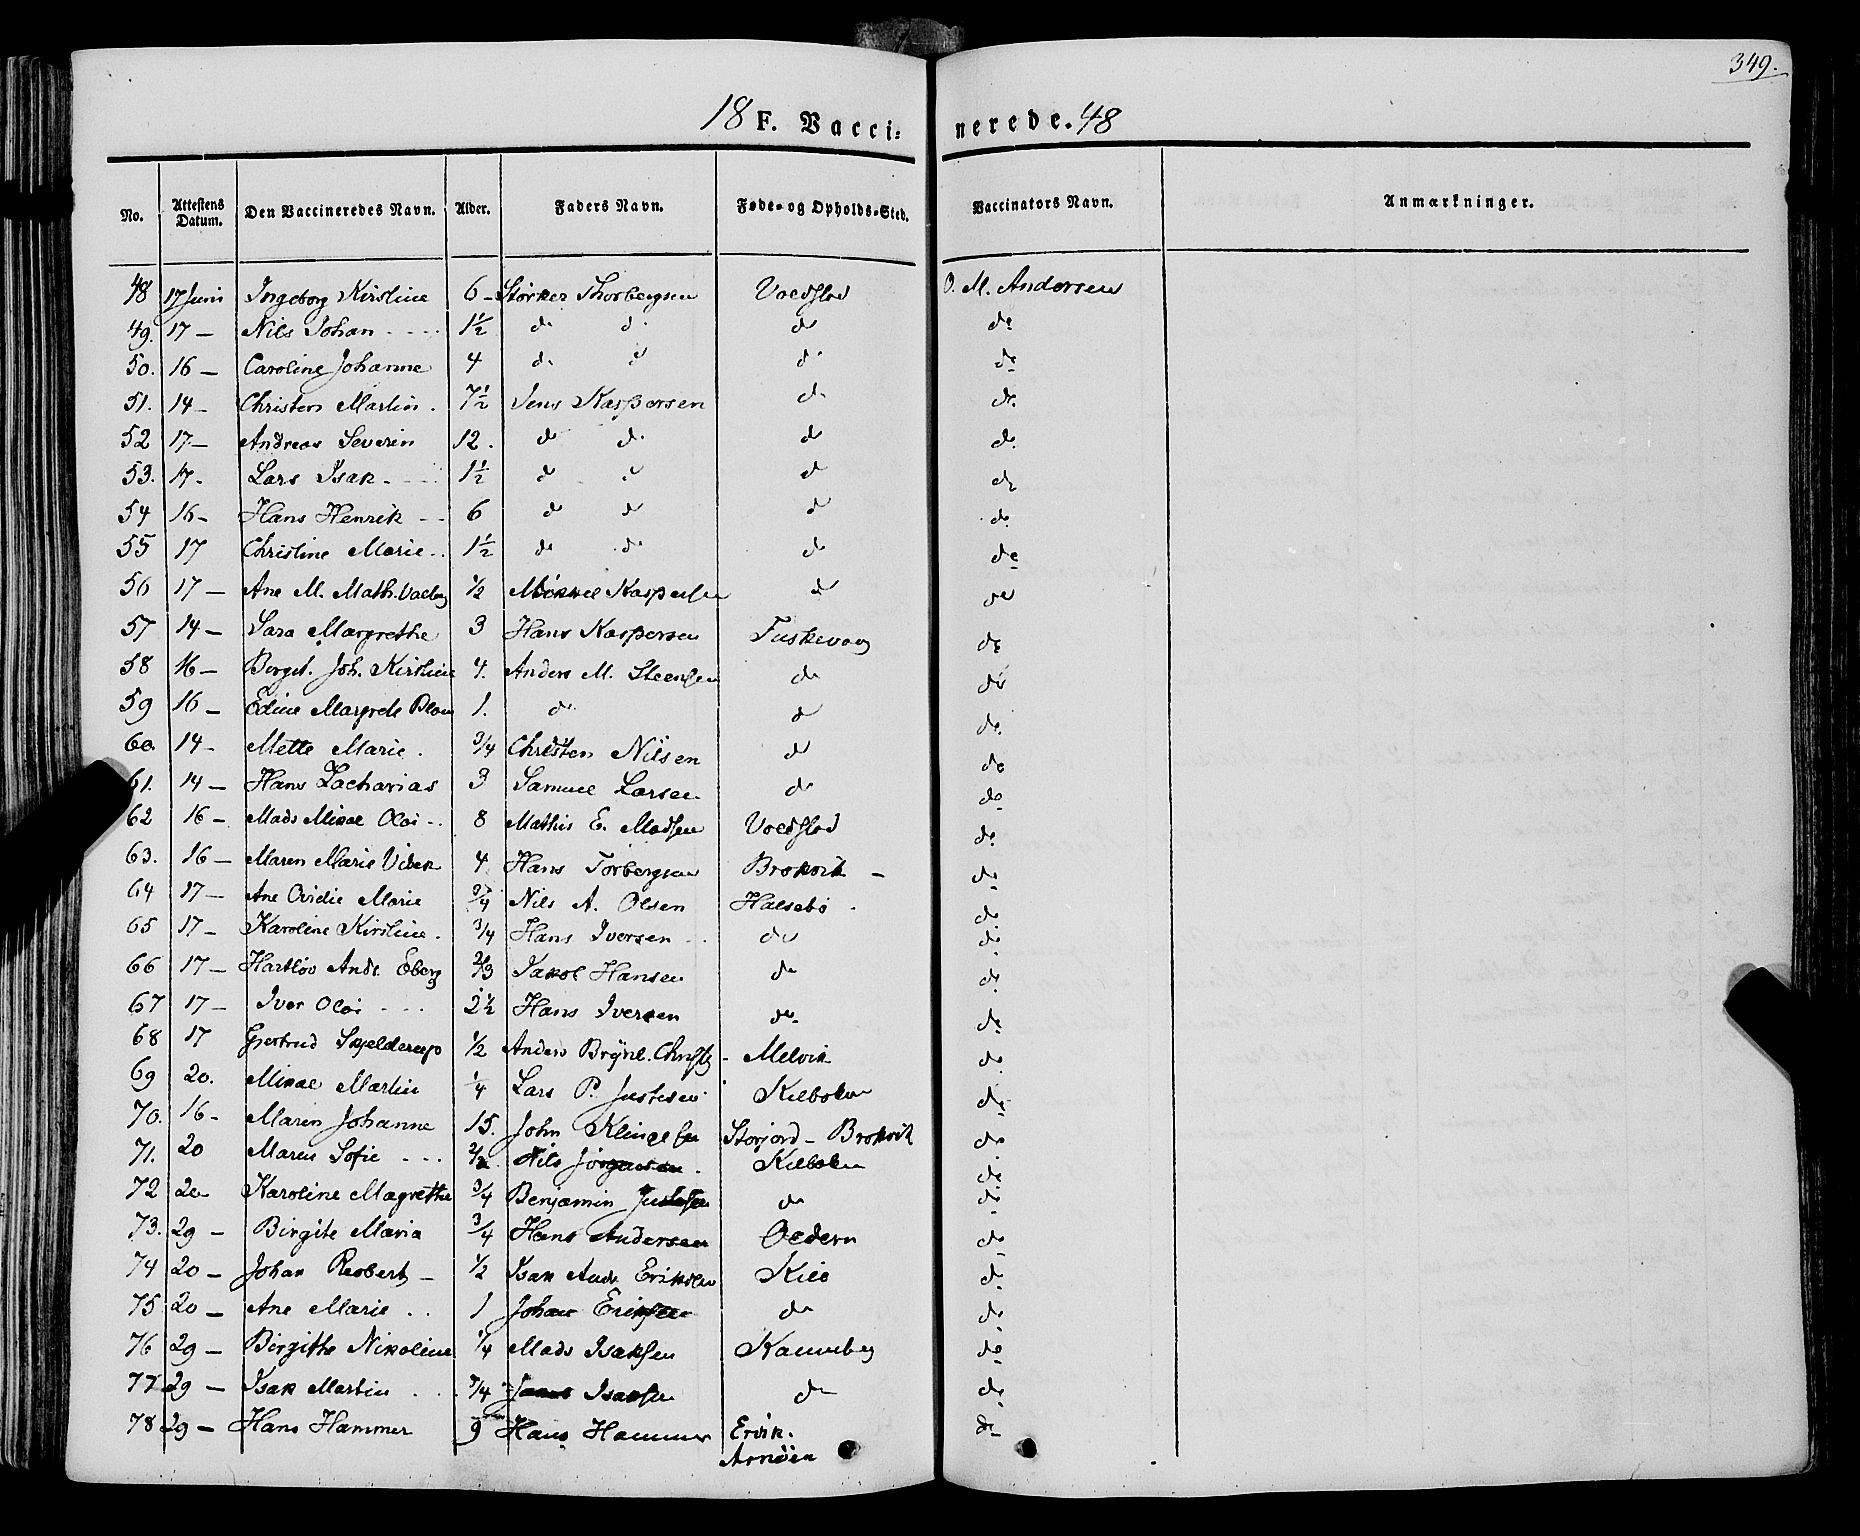 349.
18 F. Vaccinerede. 48
No. Attestens Datum. Den Vaccineredes Navn. Alder. Faders Navn. Føde- og Opholds-Sted. Vaccinators Navn. Anmærkninger.
48 17 Juni Ingeborg Kirstine 6 Størker Thorbergsen Voedflod O. M. Andersen
49. 17 — Nils Johan 1½ do do do do
50. 16 — Caroline Johanne 4 do do do do
51. 14 — Christen Martin 7½ Jens Kaspersen do do
52 17 — Andreas Severin 12. do do do do
53. 17 - Lars Isak 1½ do do do do
54 16 - Hans Henrik 6 do do do do
55 17 Christine Marie 1½ do do do do
56 17 — Ane M. Math. ½ Mikkel Kaspersen do do
57 14 — Sara Margrethe 3 Hans Kaspersen Fuskevaag do
58 16 — Berget. Joh. Kirstine 4. Anders M. Steensen do do
59 16 — Edine Margrete 1. do do do
60. 14 - Mette Marie 3/4 Christen Nilsen do do
61. 14 — Hans Zacharias 3 Samuel Larsen do do
62 16 - Mads Mikal Olai 8 Mathis E. Madsen Voedflod do
63. 16 — Maren Marie Vibek 4 Hans Torbergsen Brokvik do
64 17 — Ane Ovidie Marie 3/4 Nils A. Olsen Halsebø do
65 17 - Karoline Kirstine 3/4 Hans Iversen do do
66 17 — Hartløv Andr. Eberg 2/3 Jakob Hansen do do
67 17 — Iver Olai 2½ Hans Iversen do do
68 17 Gjertrud Skjelderup ½ Anders Brynl. Melvik do
69 20. Mikal Martin ¼ Lars P. Justesen Kilbotn do
70. 16 - Maren Johanne 15. John Storjord - Brokvik do
71. 20 Maren Sofie Nils Jørgensen Kilbotn do
72 20 Karoline Magrethe 3/4 Benjamin Justesen do do
73. 29 — Birgite Maria 3/4 Hans Andersen do
74 20 — Johan Robert ½ Isak Andr. Eriksen Kile do
75 20 — Ane Marie 1 Johan Eriksen do do
76 29 — Birgithe Nikoline ¼ Mads Isaksen do
77 29 — Isak Martin 3/4 Isaksen do do
78 29 — Hans Hammer 9 Hans Hammer Ervik. do
Arnøen